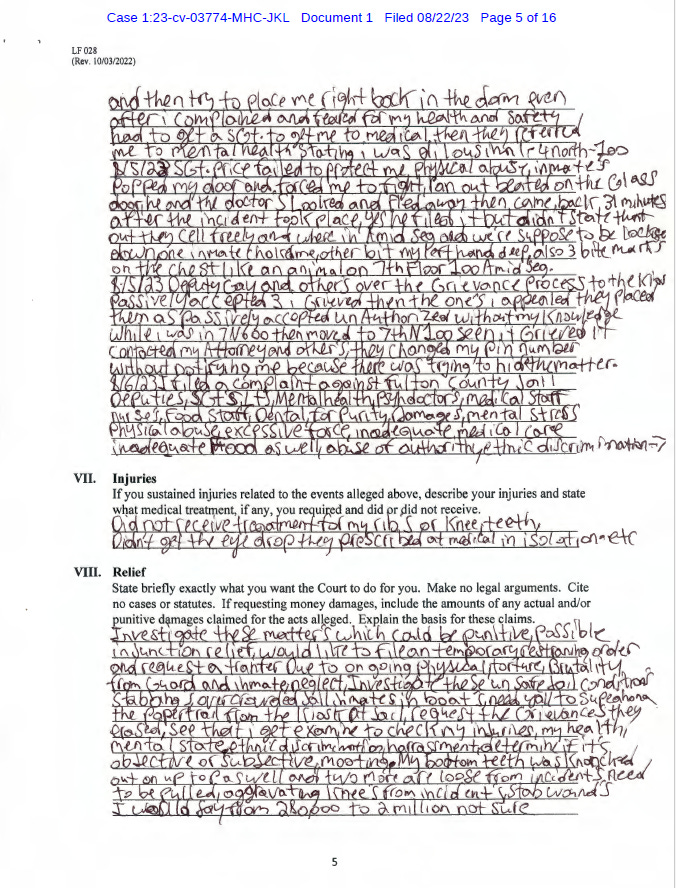 Case 1:23-cv-03774-MHC-JKL Document 1 Filed 08/22/23 Page 5 of 16
LF 028
(Rev. 10/03/2022)
and then try to place me right back in the dorm even
after i complained and feared for my health and safety
had to get a SGt. to get me to medical, then they referred
me to mental health stating i was 4north-100
8/5/23 SGt. Price failed to protect me, Physical abuse, inmate's
Popped my door and forced me to fight, ran out beated on the Glass
door, he and the doctor Looked and fled away then came back, 31 minutes
after the incident took place, yes he filed it but didn't state that
out they cell freely and where in Amid Seg and we're suppose to be
down, one inmate me, other bit my hand deep, also 3 bite marks
on the chest like an animal on 7th Floor 100 Amid Seg.
8/5/23 Deputy Gay and others over the Grievance Process to the
Passively accepted 3 i Grieved then the one's i appealed they placed
them as passively accepted unAuthorized without my Knowledge
while i was in 7N600 then moved to 7thN100 seen it Grieved it
contacted my Attorney and other's, they changed my pin number
without notifying me because there was trying to hide the matter.
8/6/23 I filed a complaint against Fulton County Jail
Deputies, SGtS, Lts, Mental health, Psh doctors, medical Staff
nurses, Food Staff, Dental, for Purity, Damages, mental Stress
Physical abuse, excessive force, inadequate medical care
inadequate food as well abuse of authorithy, ethnic discrimination→
VII. Injuries
If you sustained injuries related to the events alleged above, describe your injuries and state
what medical treatment, if any, you required and did or did not receive.
Did not receive for my ribs or Knee, teeth,
Didn't get the eye drop they prescribed at medical in isolation-etc
VIII. Relief
State briefly exactly what you want the Court to do for you. Make no legal arguments. Cite
no cases or statutes. If requesting money damages, include the amounts of any actual and/or
punitive damages claimed for the acts alleged. Explain the basis for these claims.
Investigate these matter's which could be punitive, Possible
injunction relief, would like to file an temporary order
and request a Due to on going Physical torture, Brutality
from Guard and inmate, neglect, Investigate these unsafe Jail conditions
Stabbing's, overcrowded Jail, inmates in boat i need yall to
the Papertrail from the Kiosk at Jail, request the Grievances they
erased, see that i get examine to check my injuries, my health,
mental state, ethnic discrimination, harrassment, determine if it's
objective or Subjective, mooting. My bottom teeth was Knocked
out on up top aswell and two more are loose from incident's, need
to be pulled, aggravating Knee's from incident's, stab wounds
I would say from 280,000 to 2 million not sure
5